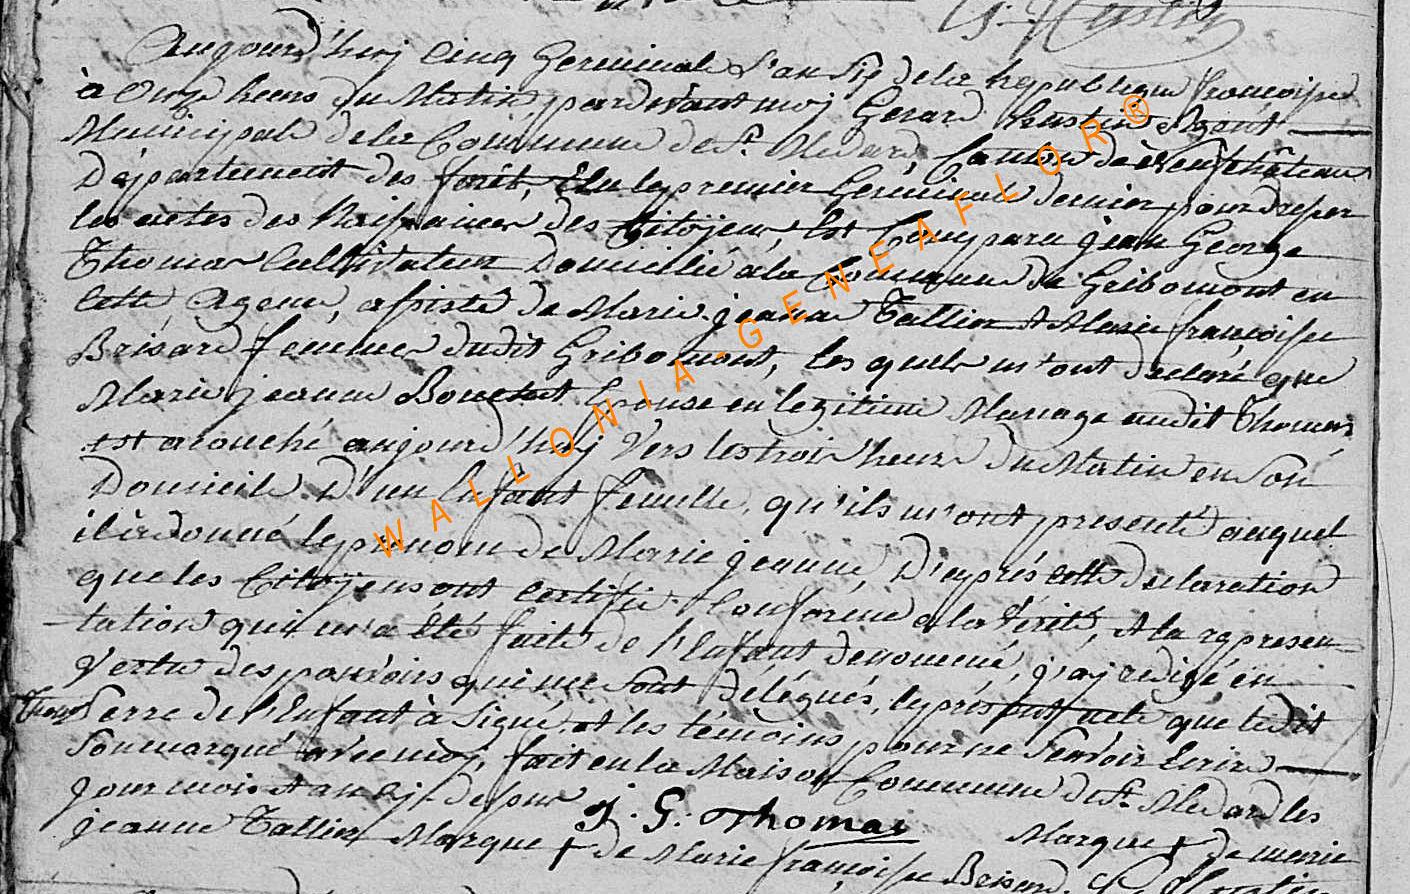 Aujourd'huj Cinq Germinal L'an Six de la République françoise
à Onze heures du Matin, pardevant moj Gerard hustin Agent
Municipal de la Commune de St. Medard Canton de Neufchâteau
Département des forêts, Elu le premier Germinal dernier pour dresser
les actes des Naissances des Citöjens, Est Comparu jean George
Thomas Cultivateur Domicilié a la Commune de Gribomont en
Cette Agence, assisté de Marie jeanne Tallier et Marie françoise
Brisard femmes dudit Gribomont, les quels m'ont declaré que
Marie jeanne Epouse en legitime Mariage audit Thomas,
est acouché aujourd'huj Vers les trois heures du Matin en Son
Domicile D'un Enfant femelle, qu'ils m'ont presenté auquel
il à donné le prenom de Marie jeanne, D'après cette declaration
que les Citojens ont certifié Conforme a la Vérité, et la represen-
-tation qui m'a été faite de l'Enfant denommé, j'aj redigé en
Vertu des pouvoirs qui me sont délégués, le présent acte que ledit
Thomas Perre de l'Enfant à Signé, et les témoins pour ne Savoir Ecrire
Sonmarqué avec moj, fait en la Maison Commune de St. Medard les
jour mois et an
J. G. Thomas
Marque + de marie
jeanne Tallier Marque + de Marie françoise Brisard.
WALLONIA-GENEAFLOR®